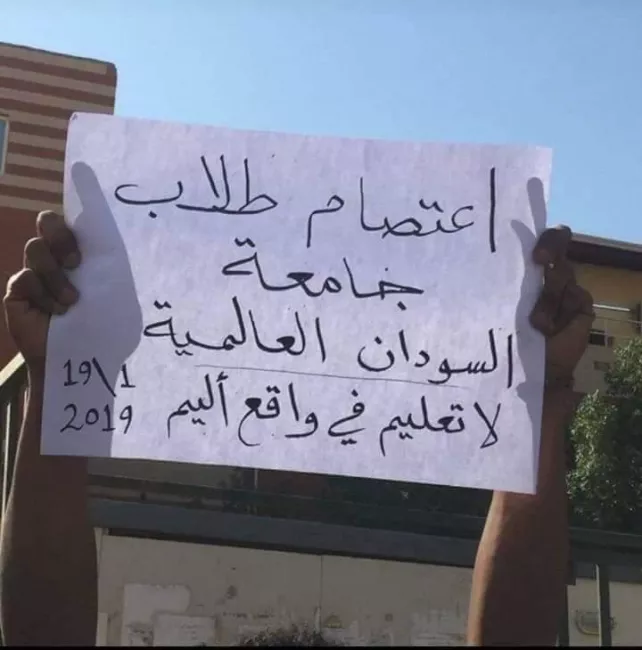 اعتصام طلاب
جامعة
السودان العالمية
لا تعليم في واقع أليم
19\1
2019